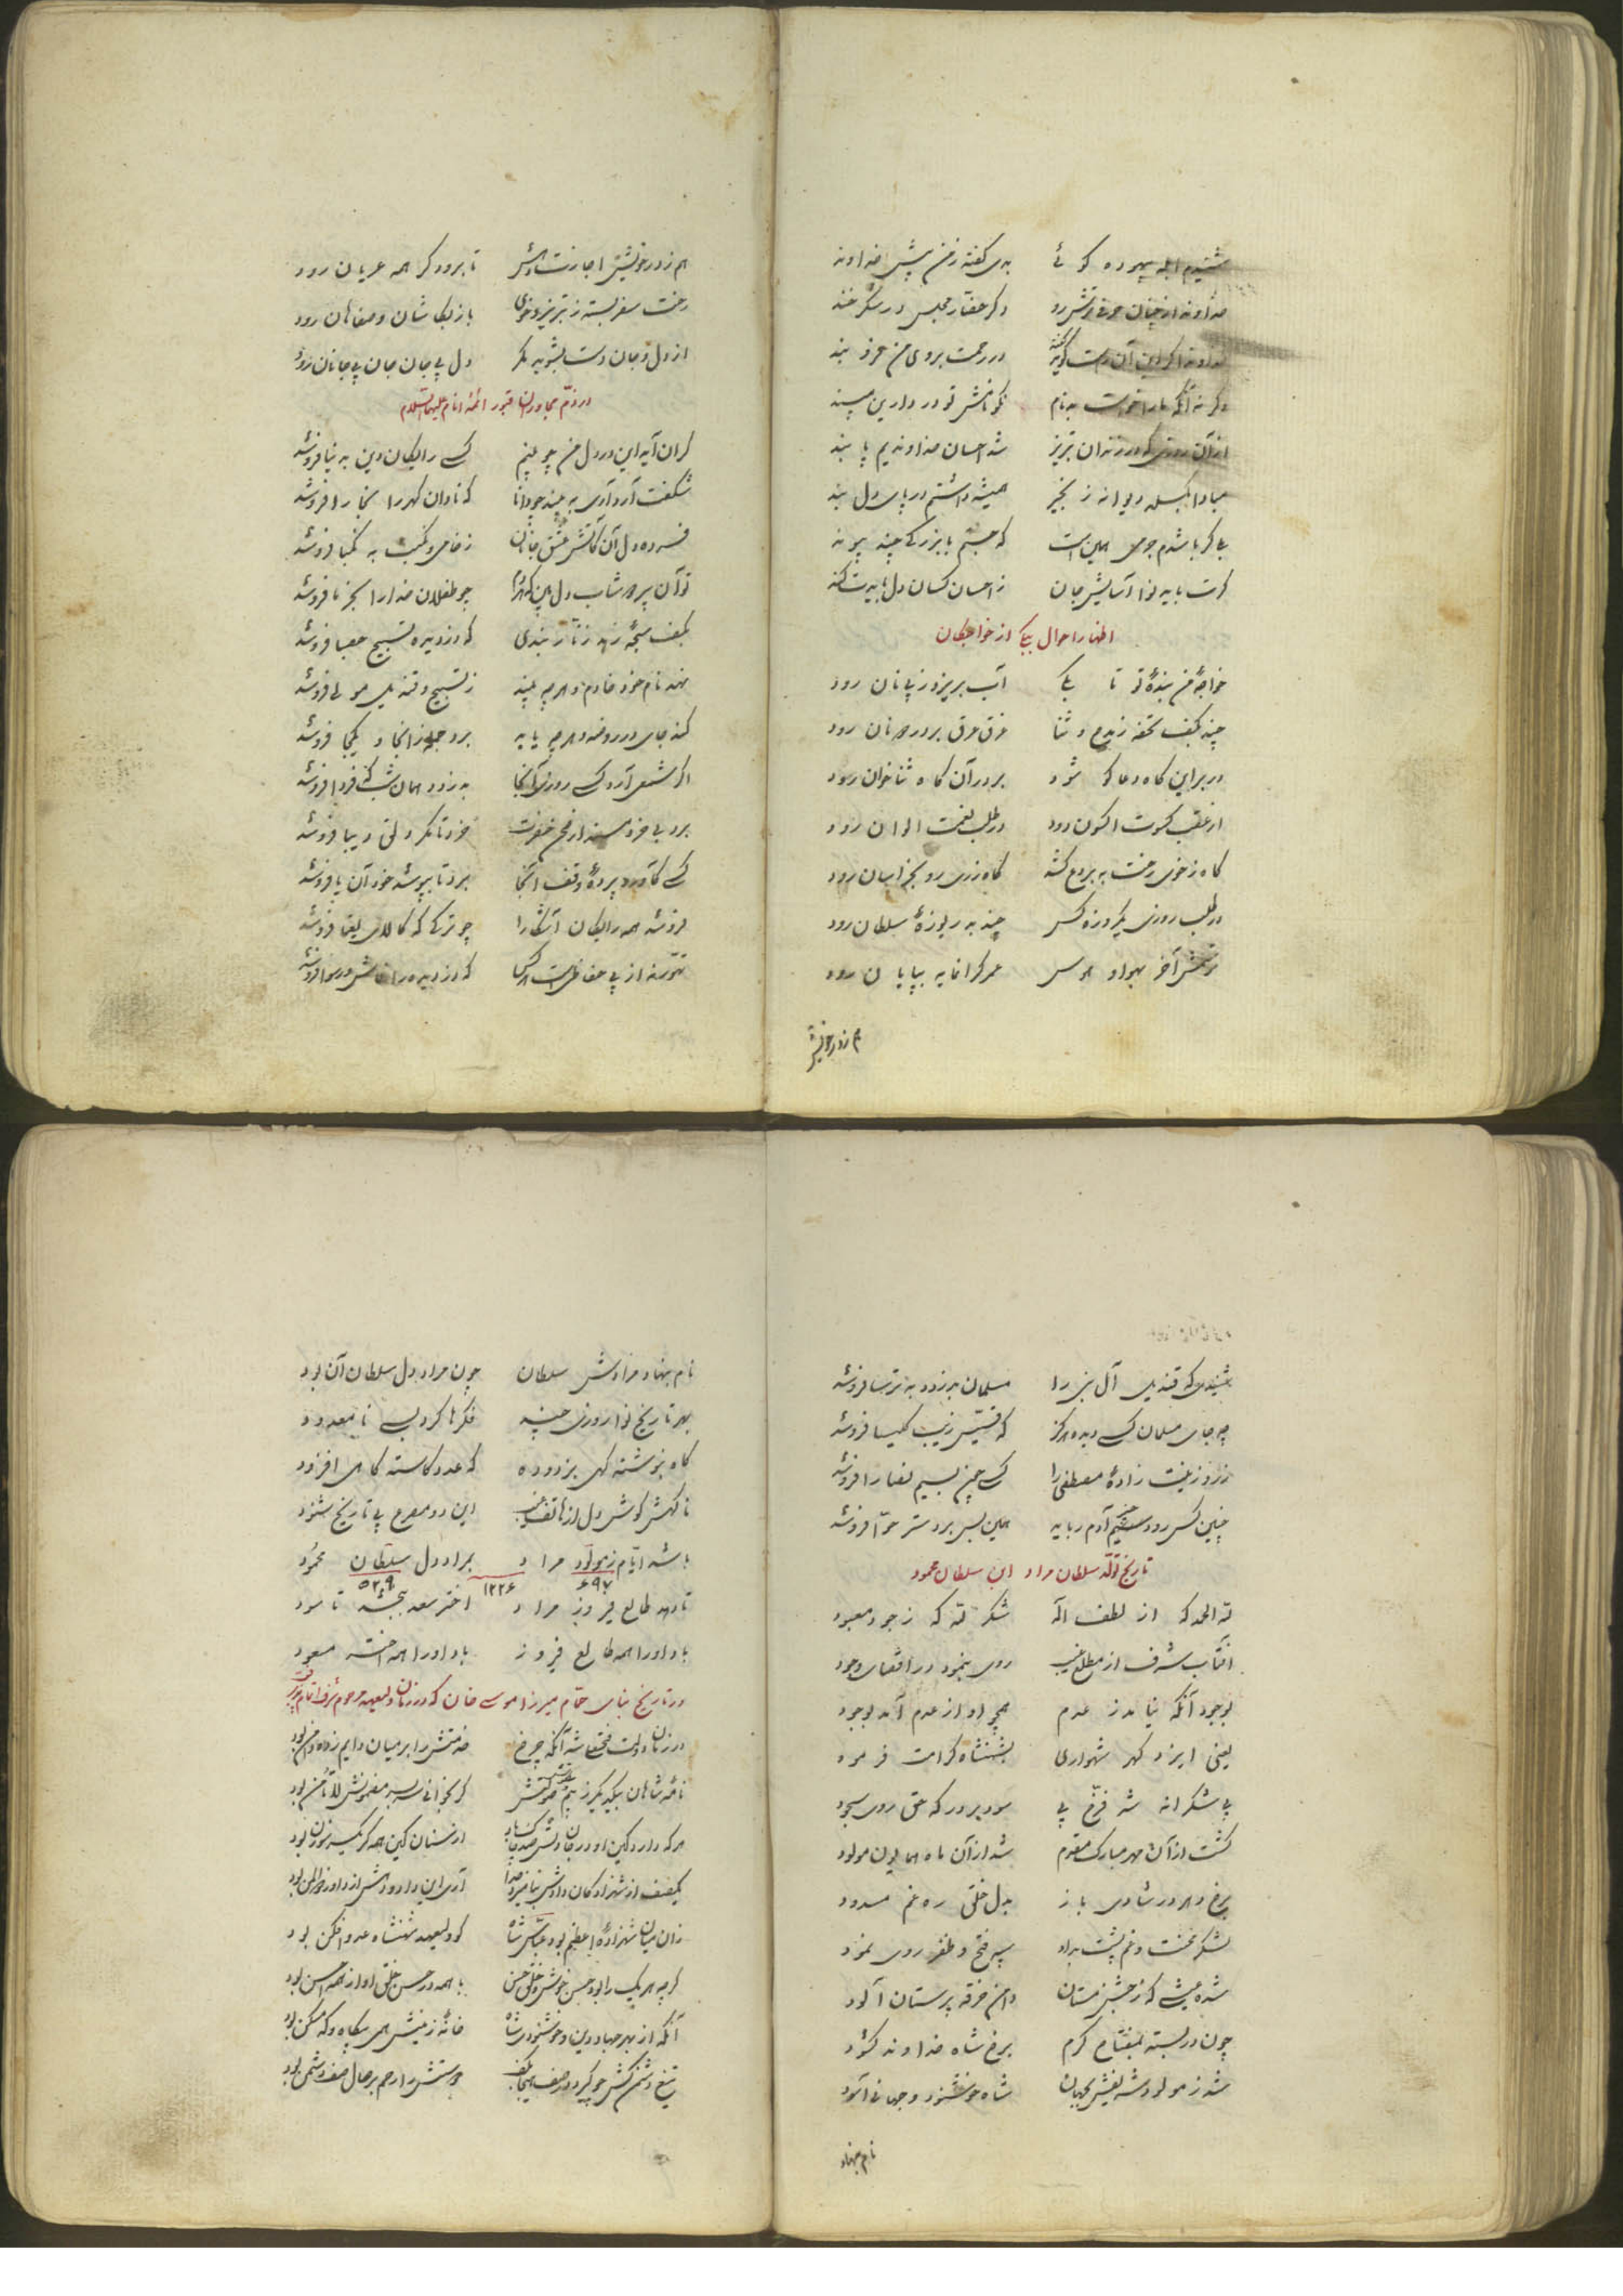 شنیدم ابلهی بیهوده گوئی بدی گفته ز من پیش خداوند
خداوند از چنان حرفی ترش رو دگر حضار مجلس در شکر خند
خداوندا گر این آن رحمت بروی من مرو بند
وگرنه آنکه ما را خواست بدنام نکونامش تو در دارین مپسند
از آن روزی که در زندان تبریز شد احسان خداوندیم پا بند
مبادا بگسلد دیوانه زنجیر همیشه داشتم در پای دل بند
پی گر باشدم جرمی همین است که جستم با بزرگی چند پیوند
گرت باید نوا آسایش جان ز احسان کسان دل بایدت کند
اظهار احوال بیک از خواجگان
خواجهٔ من بندهٔ تو تا بکی آب بریزد ز پی نان رود
چند بکف تحفه ز مدح و ثنا غرق عرق بر در دونان رود
در بر این گاه دعاگو شود بر در آن گاه ثناخوان رود
از عقب کسوت اکسون دود در طلب نعمت الوان رود
گاه ز خوی رخت به بردع کشد گاه ز ری رو بخراسان رود
در طلب روزی یکروزه کس چند به دریوزهٔ سلطان رود
آخر بهوا و هوس عمر گرانمایه بپایان رود
هم ز در خویش
هم ز در خویش اجازت دهش تا برود گر همه عریان رود
رخت سفر بسته ز تبریز و خوی باز بکاشان و صفاهان رود
از دل و جان دست بشوید مگر دل پی جان جان پی جانان رود
در ذم مجاوران قبور ائمه انام علیهم السلام
گران آید این در دل من چو بینم کسی رایگان دین به دنیا فروشد
شگفت آرد آری به بیند چو دانا که نادان گهر را بخارا فروشد
فسرده دل آن کاتش عشق جانان ز خامی و نکبت به نکبا فروشد
تو آن پیر شاب دل بین که هر دم چو طفلان خدا را بخرما فروشد
بکف سبحهٔ زهد زنار بندی که دزدیده تسبیح حصبا فروشد
نهد نام خود خادم و هرچه بیند ز تسبیح و قندیل مولی فروشد
کند جای در روضه و هرچه یابد برد جمله زانجا و یکجا فروشد
اگر شمعی آرد کسی روزی آنجا بدزدد همان شب که فردا فروشد
برد بی خرد مسند از فخر حضرت خرد تا مگر دلق دیبا فروشد
کسی کآورد پردهٔ وقف آنجا برد تا بپوشد خود آن یا فروشد
فروشد همه رایگان آشکارا چو ترکی که کالای یغما فروشد
نترسد از پی حفاظ است که دزدیده را فاش و رسوا فروشد
شنیدی که قندیل آل نبی را مسلمان بدزدد به ترسا فروشد
چه جای مسلمان کسی دیده هرگز که قسیس زیب کلیسا فروشد
زر و زینت زادهٔ مصطفی را کسی چون بسیم نصارا فروشد
چنین کس رود جسم آدم رباید همین بس برد ستر حوا فروشد
تاریخ تولد سلطان مراد ابن سلطان محمود
لله الحمد که از لطف اله شکر لله که ز جود معبود
آفتاب شرف از مطلع غیب روی بنمود در اقصای وجود
بوجود آنکه نیامد ز عدم همچو او از عدم آمد بوجود
یعنی ایزد گهر شهواری بشهنشاه کرامت فرمود
پی شکرانه شه فرخ پی سود بر درگه حق روی سجود
گشت از آن مهر مبارک مقدم شد از آن ماه همایون مولود
برخ دهر در شادی باز بدل خلق ره غم مسدود
لشکر محنت و غم پشت بداد سپه فتح و ظفر روی نمود
شد بعیشی که ز جشن مستان دامن خرقه پرستان آلود
چون در بسته بمفتاح کرم برخ شاه خداوند گشود
شد ز مولود شه نقش بجهان شاه خوشنود و جهانی آسود
نام بنهاد
نام بنهاد مرادش سلطان چون مراد دل سلطان آن بود
بهر تاریخ نوا روزی چند فکرها کرد بسی نامعدود
گاه بنوشته گهی بزدوده که عدد کاسته گاهی افزود
ناگهش گوش دل از هاتف غیب این دو مصرع پی تاریخ شنود
باشد ایام ز مولود مراد بمراد دل سلطان محمود
۶۹۷ ۱۲۲۶ ۵۲۹
تا دهد طالع فیروز مراد اختر سعد بخشد تا سود
باد او را همه طالع فیروز باد او را همه اختر مسعود
در تاریخ بنای حمام میرزا موسی خان که در زمان ولیعهد مرحوم شرف اتمام پذیرفت
در زمان دولت فتحعلی شه آنکه چرخ خدمتش را بر میان دایم زه دامن بود
نامهٔ شاهان بیکدیگر ز بیم گر بخوانی سربسر مضمونش لا تأمن بود
هرکه دارد کین او در جان از سنان کین همه گر یکسر سوزن بود
یکصف از شهزادگان دادش آری این داد و دهش از داور ذوالمن بود
زان میان شهزادهٔ اعظم بود عباس شاه کو ولیعهد شهنشاه عدو افکن بود
گرچه هر یک را بود حسن خوش و خلق حسن با همه در حسن خلق او از همه احسن بود
آنکه از بهر جهاد دین و خوشنودی شاه خانهٔ زینش همی بنگاه و گه مسکن بود
تیغ دشمن کش چو گیرد در صف هیجا بکف دوستش را رحم بر حال صف دشمن بود